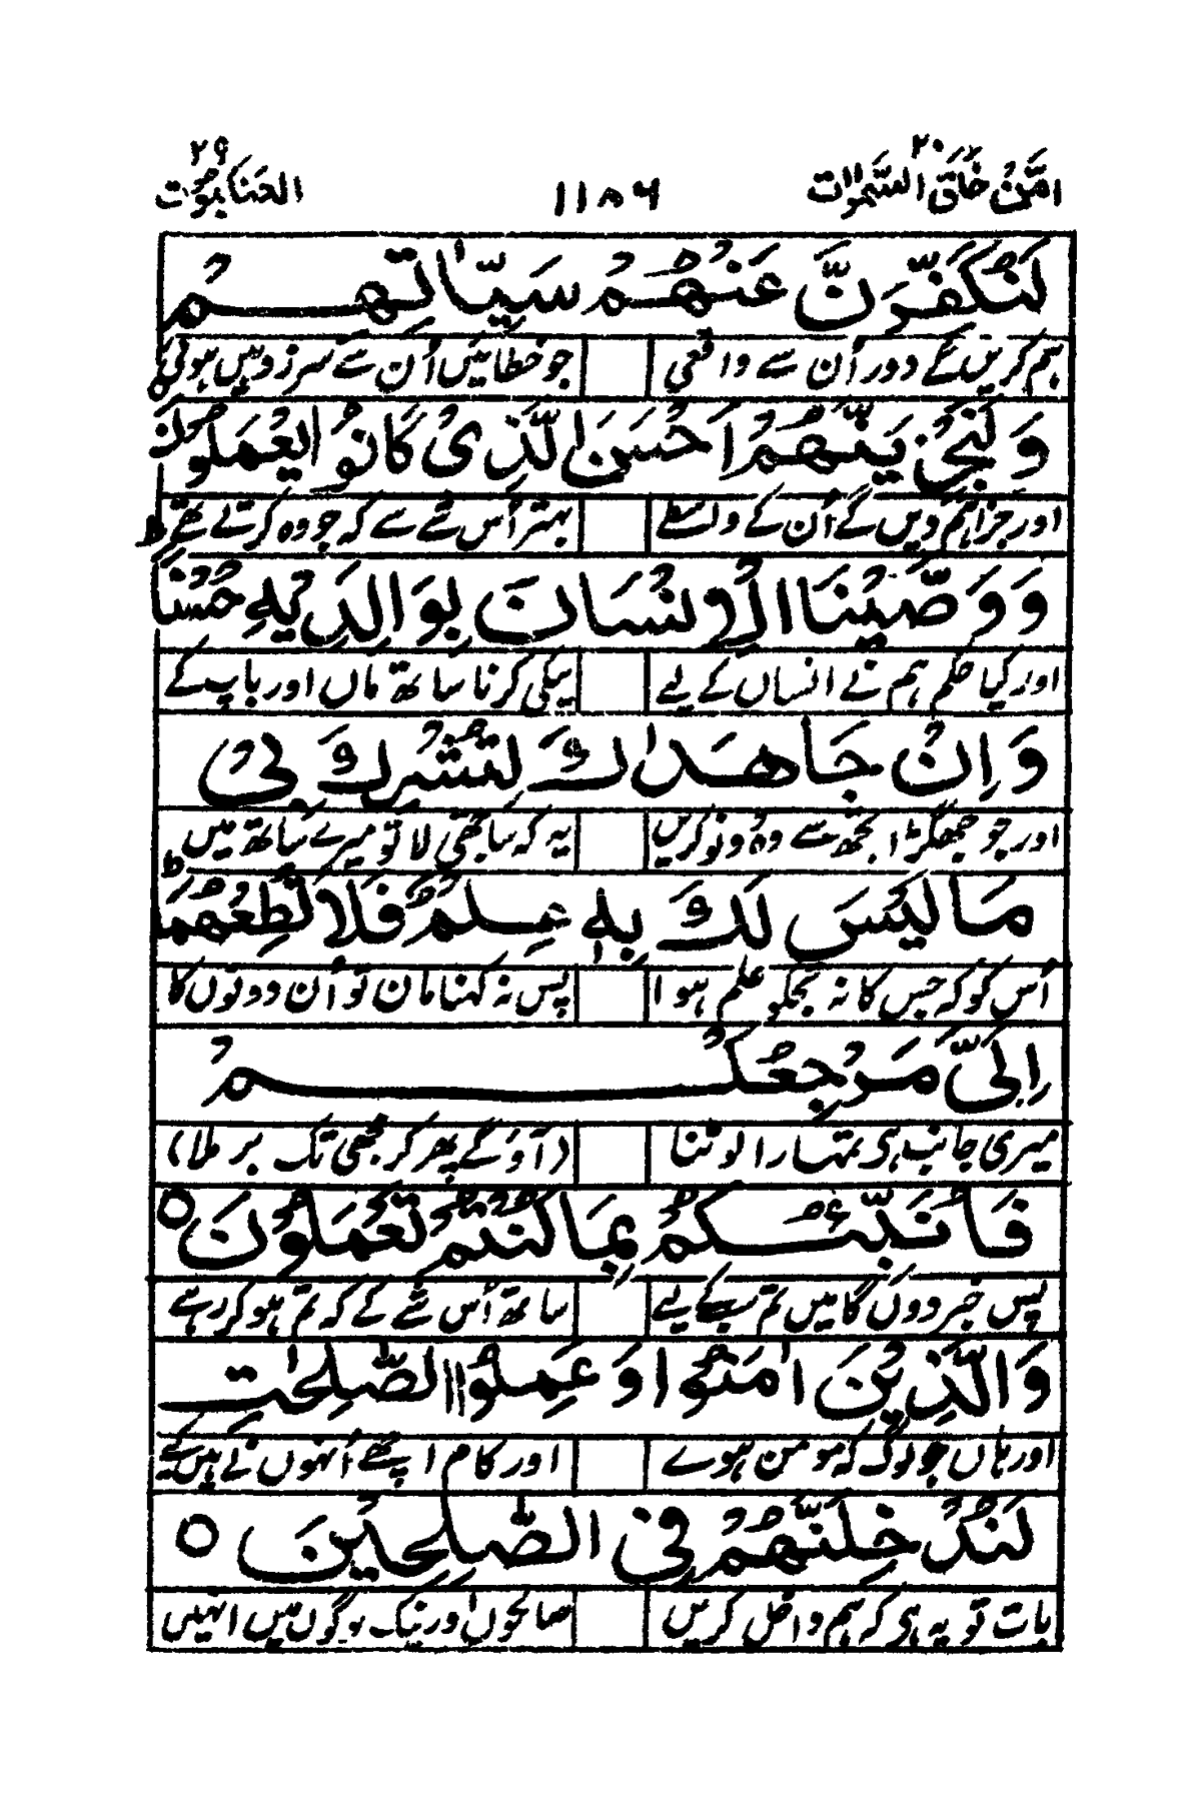 امن خلق السموات ۲۰ ۱۱۸۶ العنکبوت ۲۹
لَنُكَفِّرَنَّ عَنْهُمْ سَيِّاٰتِهِمْ
ہم کریں گے دور اُن سے واقعی جو خطائیں اُن سے سرزد ہیں ہوئی
وَلَنَجْزِيَنَّهُمْ اَحْسَنَ الَّذِيْ كَانُوْا يَعْمَلُوْنَ
اور جزا ہم دیں گے اُن کے واسطے بہتر اُس شے سے کہ جو وہ کرتے تھے
وَوَصَّيْنَا الْاِنْسَانَ بِوَالِدَيْهِ حُسْنًا
اور کیا حکم ہم نے انساں کے لیے نیکی کرنا ساتھ ماں اور باپ کے
وَاِنْ جَاهَدٰكَ لِتُشْرِكَ بِيْ
اور جو جھگڑا تجھ سے وہ دونو کریں یہ کہ ساجھی لا تو میرے ساتھ میں
مَا لَيْسَ لَكَ بِهٖ عِلْمٌ فَلَا تُطِعْهُمَا ط
اُس کو کہ جس کا نہ تجکو علم ہوا پس نہ کہنا مان تو اُن دونوں کا
اِلَيَّ مَرْجِعُكُمْ
میری جانب ہی تمہارا لوٹنا (آؤ گے پھر کر مجھی تک برملا)
فَاُنَبِّئُكُمْ بِمَا كُنْتُمْ تَعْمَلُوْنَ ○
پس خبر دوں گا میں تم سب کے لیے ساتھ اُس شے کے کہ تم ہو کر رہے
وَالَّذِيْنَ اٰمَنُوْا وَعَمِلُوا الصّٰلِحٰتِ
اور ہاں جو لوگ کہ مومن ہوے اور کام اچھے اُنہوں نے ہیں کیے
لَنُدْخِلَنَّهُمْ فِي الصّٰلِحِيْنَ ○
بات تو یہ ہی کہ ہم داخل کریں صالحوں اور نیک لوگوں میں انہیں